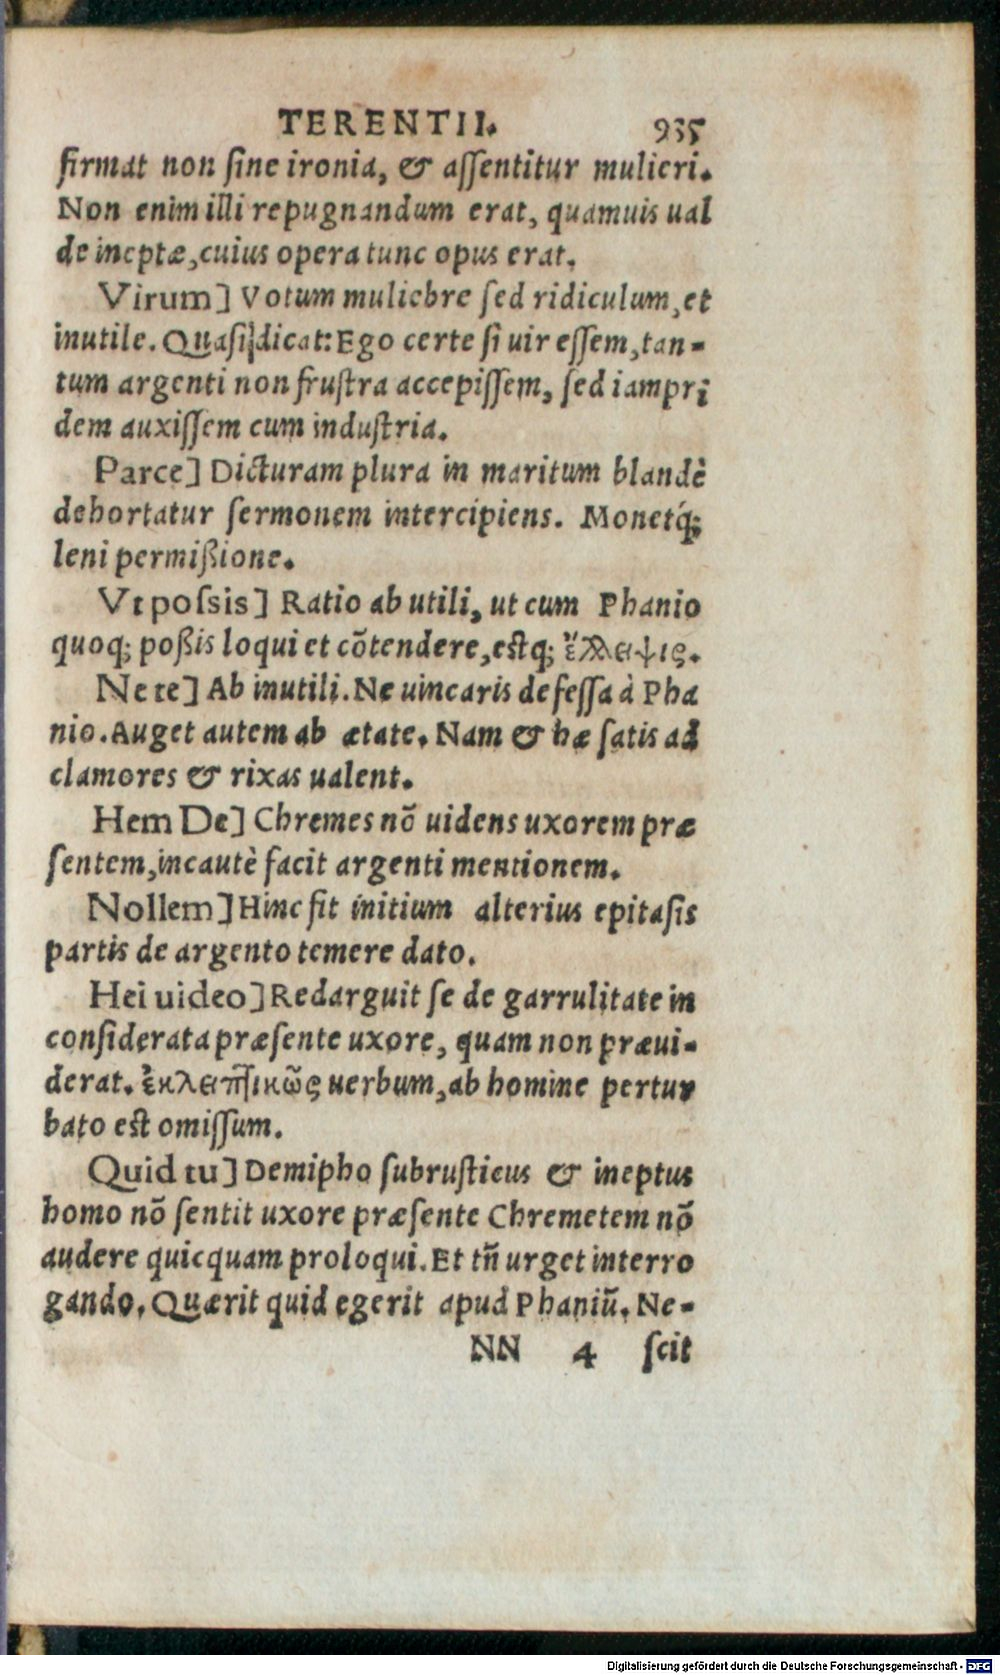 TERENTII. 935
firmat non sine ironia, & assentitur mulieri.
Non enim illi repugnandum erat, quamuis ual
de ineptæ, cuius opera tunc opus erat.
Virum] Votum muliebre sed ridiculum, et
inutile. Quasi dicat: Ego certe si uir essem, tan-
tum argenti non frustra accepissem, sed iampri
dem auxissem cum industria.
Parce] Dicturam plura in maritum blandè
dehortatur sermonem intercipiens. Monetq́;
leni permißione.
Vt possis] Ratio ab utili, ut cum Phanio
quoq; poßis loqui et cõtendere, estq; ἔλλειψις.
Ne te] Ab inutili. Ne uincaris defessa à Pha
nio. Auget autem ab ætate. Nam & hæ satis ad
clamores & rixas ualent.
Hem De] Chremes nõ uidens uxorem præ
sentem, incautè facit argenti mentionem.
Nollem] Hinc fit initium alterius epitasis
partis de argento temere dato.
Hei uideo] Redarguit se de garrulitate in
considerata præsente uxore, quam non præui-
derat. ἐκλειπτικῶς uerbum, ab homine pertur
bato est omissum.
Quid tu] Demipho subrusticus & ineptus
homo nõ sentit uxore præsente Chremetem nõ
audere quicquam proloqui. Et tñ urget interro
gando. Quærit quid egerit apud Phaniũ. Ne-
NN 4 scit
Digitalisierung gefördert durch die Deutsche Forschungsgemeinschaft - DFG